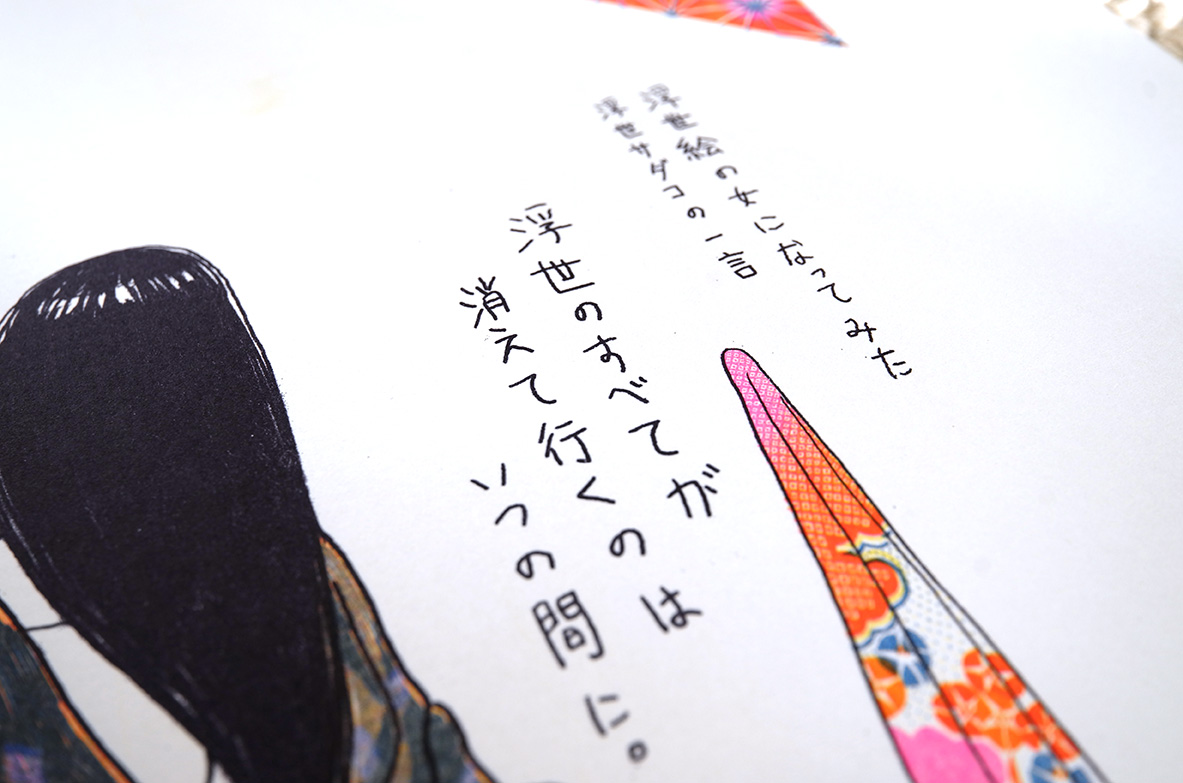 浮世絵の女になってみた
浮世サダコの一言
浮世のすべてが
消えて行くのは
いつの間に。